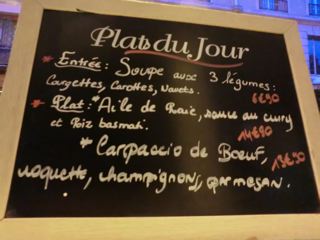 Plats du Jour
* Entrée: Soupe aux 3 légumes:
Courgettes, Carottes, Navets. 6€90
* Plat: * Aile de Raie, sauce au curry
et Riz basmati. 14€90
* Carpaccio de Bœuf, 13€90
roquette, champignons, parmesan.